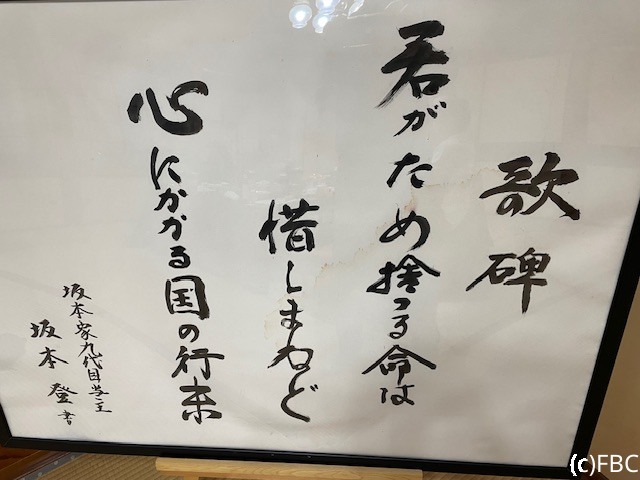 歌碑
君がため捨つる命は
惜しまねど
心にかかる国の行末
坂本家九代目当主
坂本登書
(c)FBC